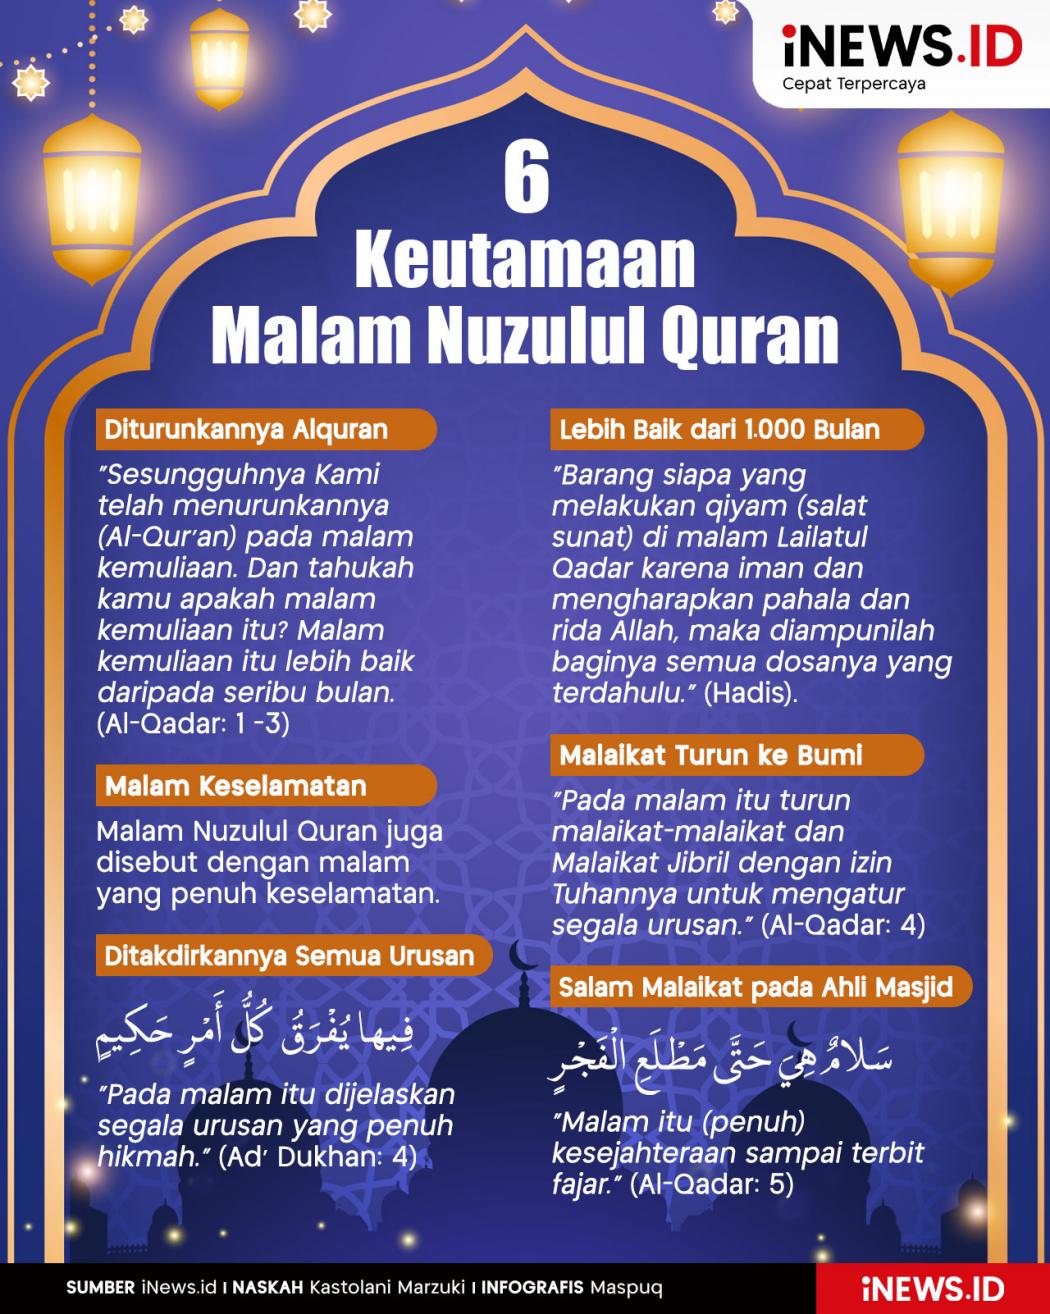 iNEWS.ID
Cepat Terpercaya
6
Keutamaan
Malam Nuzulul Quran
Diturunkannya Alquran
"Sesungguhnya Kami
telah menurunkannya
(Al-Qur'an) pada malam
kemuliaan. Dan tahukah
kamu apakah malam
kemuliaan itu? Malam
kemuliaan itu lebih baik
daripada seribu bulan.
(Al-Qadar: 1 -3)
Malam Keselamatan
Malam Nuzulul Quran juga
disebut dengan malam
yang penuh keselamatan.
Ditakdirkannya Semua Urusan
فِيها يُفْرَقُ كُلُّ أَمْرٍ حَكِيمٍ
"Pada malam itu dijelaskan
segala urusan yang penuh
hikmah." (Ad' Dukhan: 4)
Lebih Baik dari 1.000 Bulan
"Barang siapa yang
melakukan qiyam (salat
sunat) di malam Lailatul
Qadar karena iman dan
mengharapkan pahala dan
rida Allah, maka diampunilah
baginya semua dosanya yang
terdahulu." (Hadis).
Malaikat Turun ke Bumi
"Pada malam itu turun
malaikat-malaikat dan
Malaikat Jibril dengan izin
Tuhannya untuk mengatur
segala urusan." (Al-Qadar: 4)
Salam Malaikat pada Ahli Masjid
سَلامٌ هِيَ حَتَّى مَطْلَعِ الْفَجْرِ
"Malam itu (penuh)
kesejahteraan sampai terbit
fajar." (Al-Qadar: 5)
SUMBER iNews.id I NASKAH Kastolani Marzuki I INFOGRAFIS Maspuq
iNEWS.ID